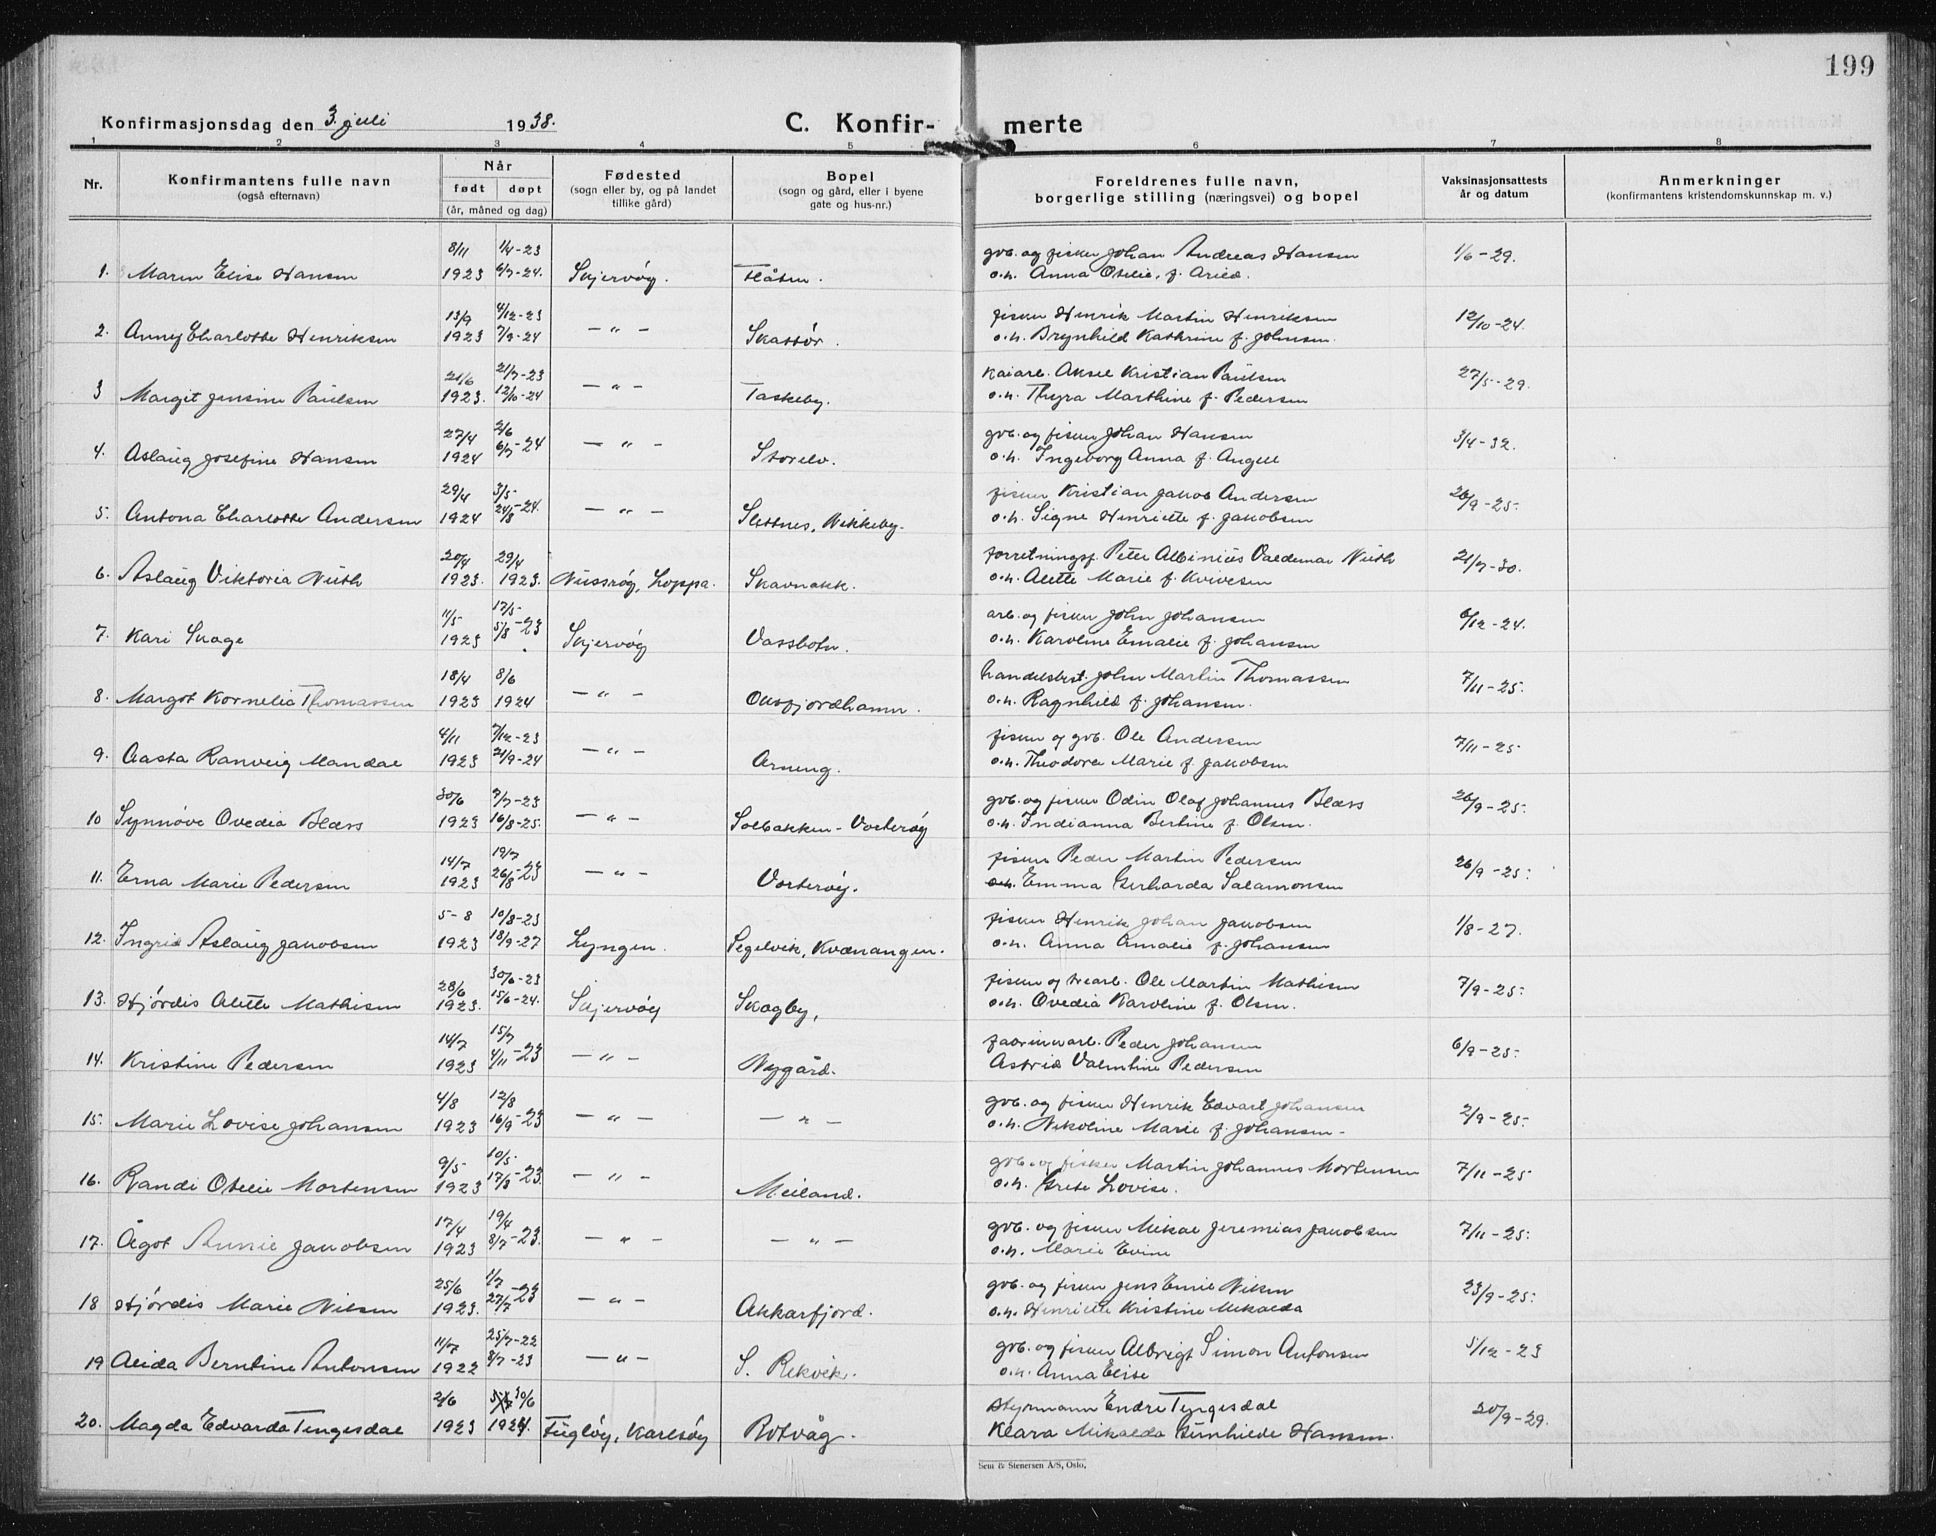 199
Konfirmasjonsdag den 3. juli 1938.
C. Konfirmerte
1 2 3 4 5 6 7 8
Nr.
Konfirmantens fulle navn
(også efternavn)
Når
født døpt
(år, måned og dag)
Fødested
(sogn eller by, og på landet
tillike gård)
Bopel
(sogn og gård, eller i byene
gate og hus-nr.)
Foreldrenes fulle navn,
borgerlige stilling (næringsvei) og bopel
Vaksinasjonsattests
år og datum
Anmerkninger
(konfirmantens kristendomskunnskap m. v.)
8/11 1/4-23 gvb. og fisker Johan Andreas Hansen 1/6-29.
1. Maren Elise Hansen 1923 6/7-24. Skjervøy. Flåten. o.h. Anna Otelie, f. Arild.
13/9 4/12-23 fisker Henrik Martin Henriksen 12/10-24.
2. Anny Charlotte Henriksen 1923 7/9-24 — " — Skattør. o.h. Brynhild Kathrine f. Johnsen.
21/6 21/7-23 kaiarb. Aksel Kristian Paulsen 27/5-29.
3 Margit Jensine Paulsen 1923. 12/10-24 — " — Taskeby. o.h. Thyra Marthine f. Pedersen
27/4 2/6 gvb. og fisker Johan Hansen 3/4-32.
4. Aslaug Josefine Hansen 1924 6/7-24 — " — Storelv. o.h. Ingeborg Anna f. Angell
29/4 3/5 fisker Kristian Jakob Andersen 26/9-25.
5. Antona Charlotte Andersen 1924 24/8-24. — " — Slettnes, Nikkeby. o.h. Signe Henriette f. Jakobsen
20/4 29/4 forretningsf. Peter Albinius Valdemar Nuth 21/7-30.
6. Aslaug Viktoria Nuth 1923. 1923. Nussøy, Loppa. Skavnakk. o.h. Alette Marie f. Kvivesen
11/5 17/5 arb. og fisker John Johansen 6/12-24.
7. Kari Skage 1923 5/8-23 Skjervøy Vassbotn. o.h. Karoline Emalie f. Johansen
18/4 8/6 handelsbest. John Martin Thomassen 7/11-25.
8. Margot Kornelia Thomassen 1923 1924 — " — Oksfjordhamn. o.h. Ragnhild f. Johansen.
4/11 7/12-23 fisker og gvb. Ole Andersen 7/11-25
9. Aasta Ranveig Mandal 1923 21/9-24 — " — Arneng. o.h. Theodora Marie f. Jakobsen
30/6 7/7-23 gvb. og fisker Odin Olaf Johannes Blæss 26/9-25.
10 Synnøve Ovedia Blæss 1923 16/8-25. — " — Solbakken - Vorterøy o.h. Indianna Bertine f. Olsen.
14/7 19/7 fisker Peder Martin Pedersen 26/9-25.
11. Erna Marie Pedersen 1923 26/8-23 — " — Vorterøy. o.h. Emma Gerharda Salamonsen
5-8 10/8-23 fisker Henrik Johan Jakobsen 1/8-27.
12. Ingrid Aslaug Jakobsen 1923 18/9-27 Lyngen. Segelvik, Kvænangen. o.h. Anna Amalie f. Johansen
28/6 30/6-23 fisker og Ole Martin Mathisen 7/9-25.
13. Hjørdis Alette Mathisen 1923. 15/6-24. Skjervøy Skogby, o.h. Ovedia Karoline f. Olsen.
14/7 15/7 fabrikkarb. Peder Johansen 6/9-25.
14. Kristine Pedersen 1923 4/11-23 — " — Nygård. Astrid Valentine Pedersen
4/8 12/8 gvb. og fisker Henrik Edvart Johansen 2/9-25.
15. Marie Lovise Johansen 1923 16/9-23 — " — — " — o.h. Nikoline Marie f. Johansen.
9/5 10/5 gvb. og fisker Martin Johannes Mortensen 7/11-25
16. Randi Otelie Mortensen 1923 17/8-23. — " — Meiland. o.h. Grete Lovise.
17/4 19/4 gvb. og fisker Mikal Jeremias Jakobsen 7/11-25.
17. Ågot Annie Jakobsen 1923 8/7-23. — " — — " — o.h. Marie Evine
25/6 1/7 gvb. og fisker Jens Emil Nilsen 23/9-25.
18 Hjørdis Marie Nilsen 1923. 27/7-23 — " — Akkarfjord. o.h. Henriette Kristine Mikalda
11/7 25/7-22 gvb. og fisker Albrigt Simon Antonsen 5/12-23
19 Alida Berntine Antonsen 1922 8/7-23 — " — S. Rekvik. o.h. Anna Elise
2/6 30/6 styrmann Endre Tyngesdal 20/9-29.
20. Magda Edvarda Tengesdal 1923 1924. Fugløy, Karlsøy Rotvåg. Klara Mikalda Gunhilde Hansen.
Sem & Stenersen A/S, Oslo.